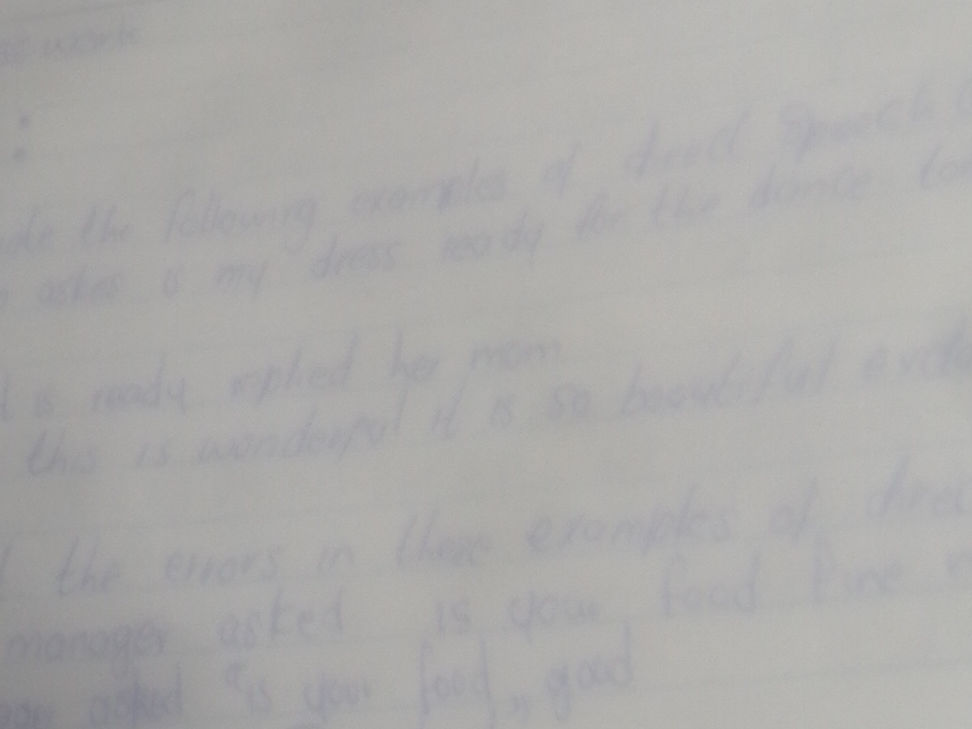 work
:
the following examples of direct speech
asked is my dress ready for the dance
is ready replied her mom
this is wonderful it is so beautiful
the errors in these examples of
manager asked is your food fine
asked "is your food,, good